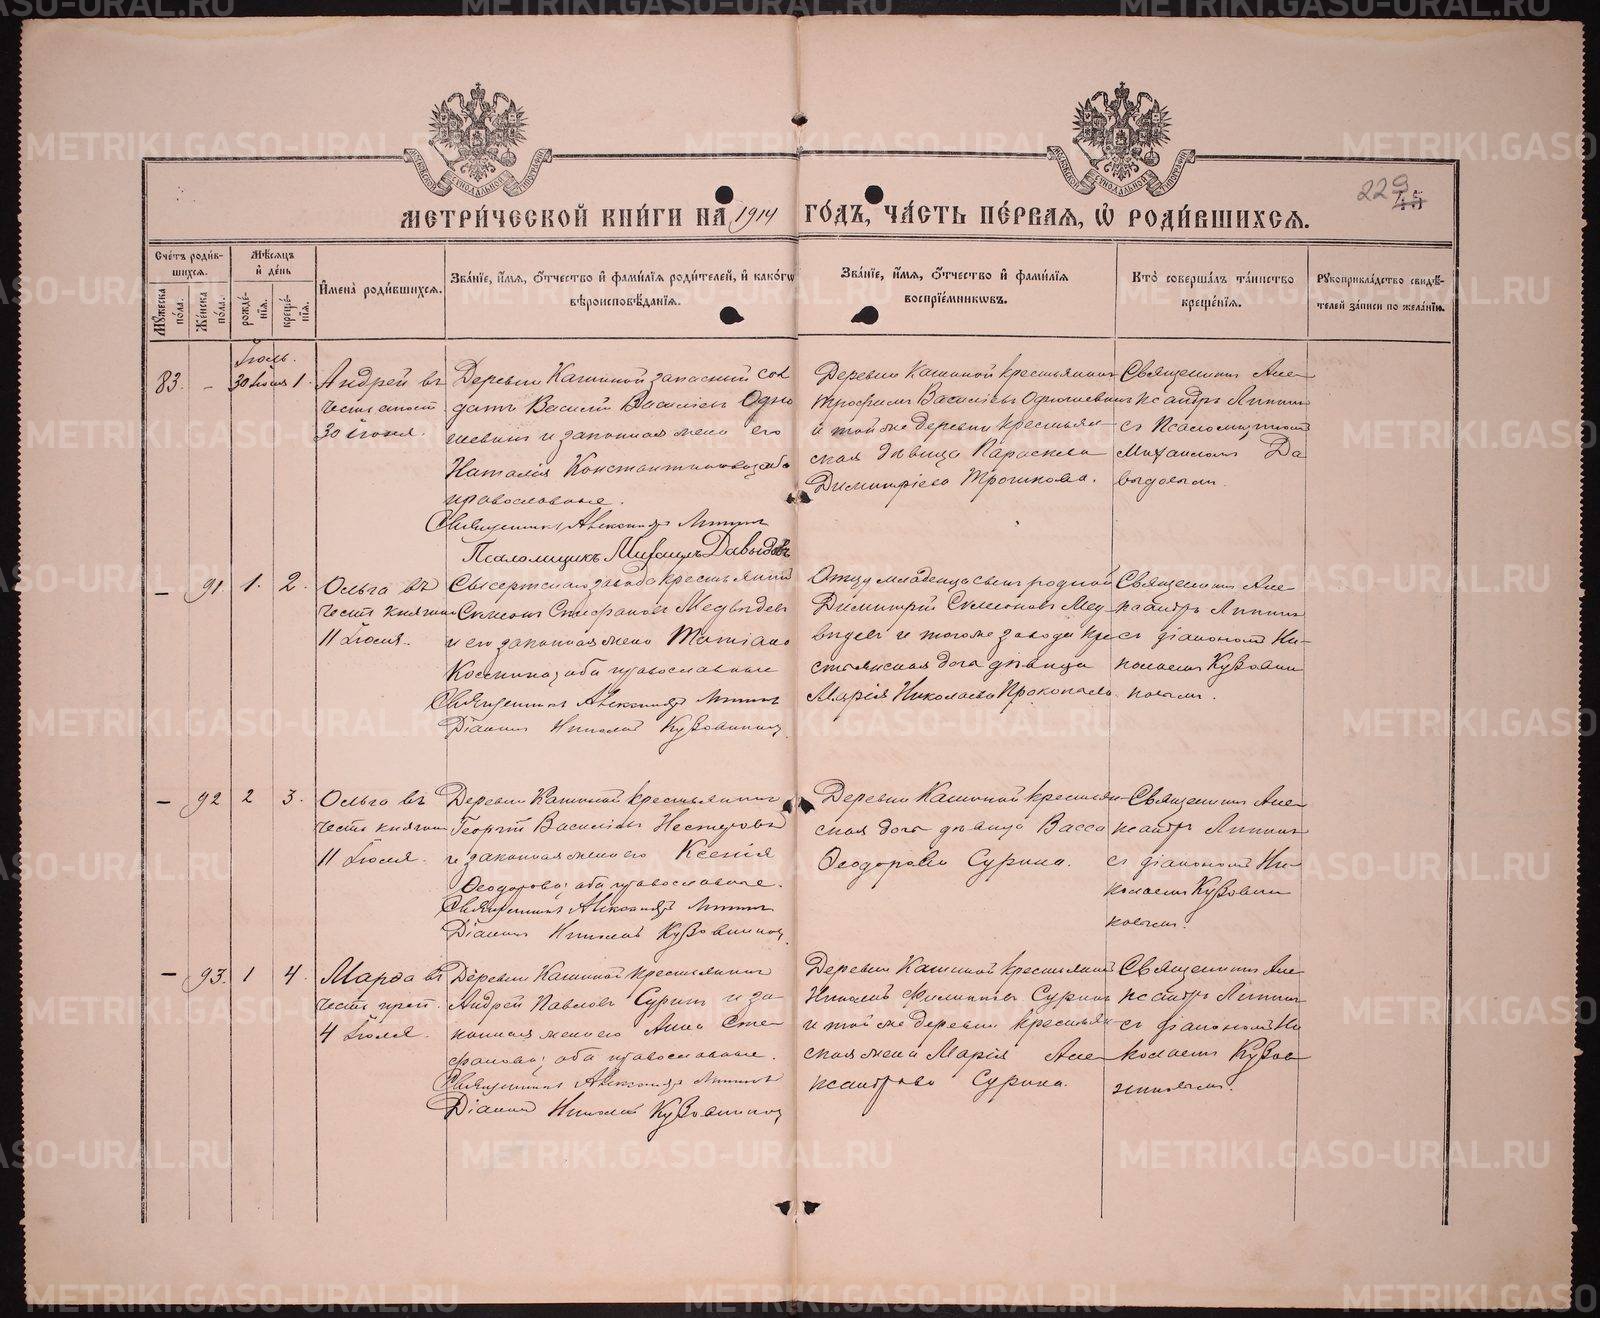 МЕТРИ́ЧЕСКОЙ КНИ́ГИ НА 1914 ГО́ДЪ, ЧА́СТЬ ПЕ́РВАЯ, Ѡ РОДИ́ВШИХСЯ.
229
Сче́тъ роди́вшихся.
Му́жеска по́ла.
Же́нска по́ла.
Мѣ́сяцъ и де́нь
рожде́нія.
креще́нія.
Имена̀ роди́вшихся.
Зва́ніе, и́мя, о́тчество и фами́лія роди́телей, и како́гѡ вѣроисповѣ́данія.
Зва́ніе, и́мя, о́тчество и фами́лія воспріе́мникѡвъ.
Кто̀ соверша́лъ та́инство креще́нія.
Рукоприкла́дство свидѣ́телей за́писи по жела́нію.
Іюль.
83. – 30 Іюня 1.
Андрей въ
честь апост.
30 Іюня.
Деревни Кашиной запасный сол
датъ Василій Василіевъ Одно
шевинъ и законная жена его
Наталія Константинова; оба
православные.
Священникъ Александръ Липинъ
Псаломщикъ Михаилъ Давыдовъ
Деревни Кашиной крестьянинъ
Трофимъ Василіевъ Одношевинъ
и той же деревни крестьян-
ская дѣвица Параскева
Димитріева Трошкова.
Священникъ Але
ксандръ Липинъ
съ Псаломщикомъ
Михаиломъ Да
выдовымъ.
– 91. 1. 2.
Ольга въ
честь княгини
11 Іюля.
Сысертскаго завода крестьянинъ
Симеонъ Стефановъ Медвѣдевъ
и его законная жена Татіана
Космина; оба православные
Священникъ Александръ Липинъ
Діаконъ Николай Кузовниковъ
Отцу младенца сынъ родной
Димитрій Симеоновъ Мед
вѣдевъ и того же завода кре
стьянская дочь дѣвица
Марія Николаева Прокопьева.
Священникъ Але
ксандръ Липинъ
съ діакономъ Ни-
колаемъ Кузовни
ковымъ.
– 92 2 3.
Ольга въ
честь княгини
11 Іюля.
Деревни Кашиной крестьянинъ
Георгій Василіевъ Нестеровъ
и законная жена его Ксенія
Ѳеодорова; оба православные.
Священникъ Александръ Липинъ
Діаконъ Николай Кузовниковъ
Деревни Кашиной крестьян
ская дочь дѣвица Васса
Ѳеодорова Сурина.
Священникъ Але
ксандръ Липинъ
съ діакономъ Ни-
колаемъ Кузовни
ковымъ.
– 93. 1 4.
Марѳа въ
честь преп.
4 Іюля.
Деревни Кашиной крестьянинъ
Андрей Павловъ Суринъ и за
конная жена его Анна Сте
фанова; оба православные.
Священникъ Александръ Липинъ
Діаконъ Николай Кузовниковъ
Деревни Кашиной крестьянинъ
Николай Филипповъ Суринъ
и той же деревни крестьян
ская жена Марія Але
ксандрова Сурина.
Священникъ Але
ксандръ Липинъ
съ діакономъ Ни
колаемъ Кузов
никовымъ.
METRIKI.GASO-URAL.RU